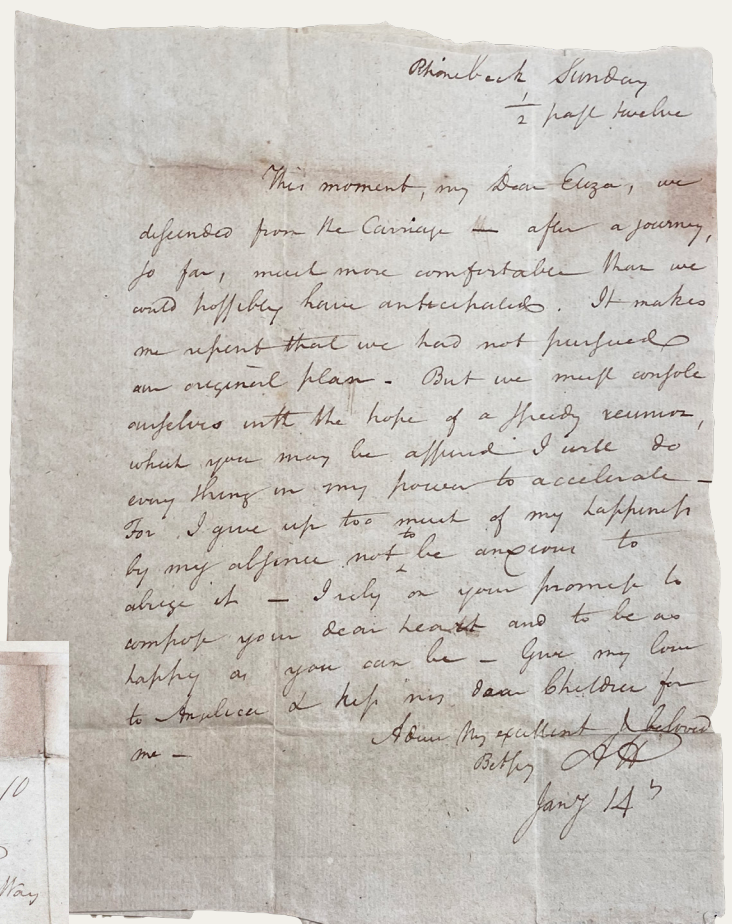 Rhinebeck Sunday
1/2 past twelve
This moment, my Dear Eliza, we
descended from the Carriage — after a journey,
so far, much more comfortable than we
could possibly have anticipated. It makes
me repent that we had not pursued
our original plan. But we must console
ourselves with the hope of a speedy reunion,
which you may be assured I will do
every thing in my power to accelerate —
For I give up too much of my happiness
by my absence not to be anxious to
abrige it — I rely on your promise to
compose your dear heart and to be as
happy as you can be — Give my love
to Angelica & kiss my dear Children for
me —
Adieu My excellent & beloved
Betsey AH
Jany 14
10
Way